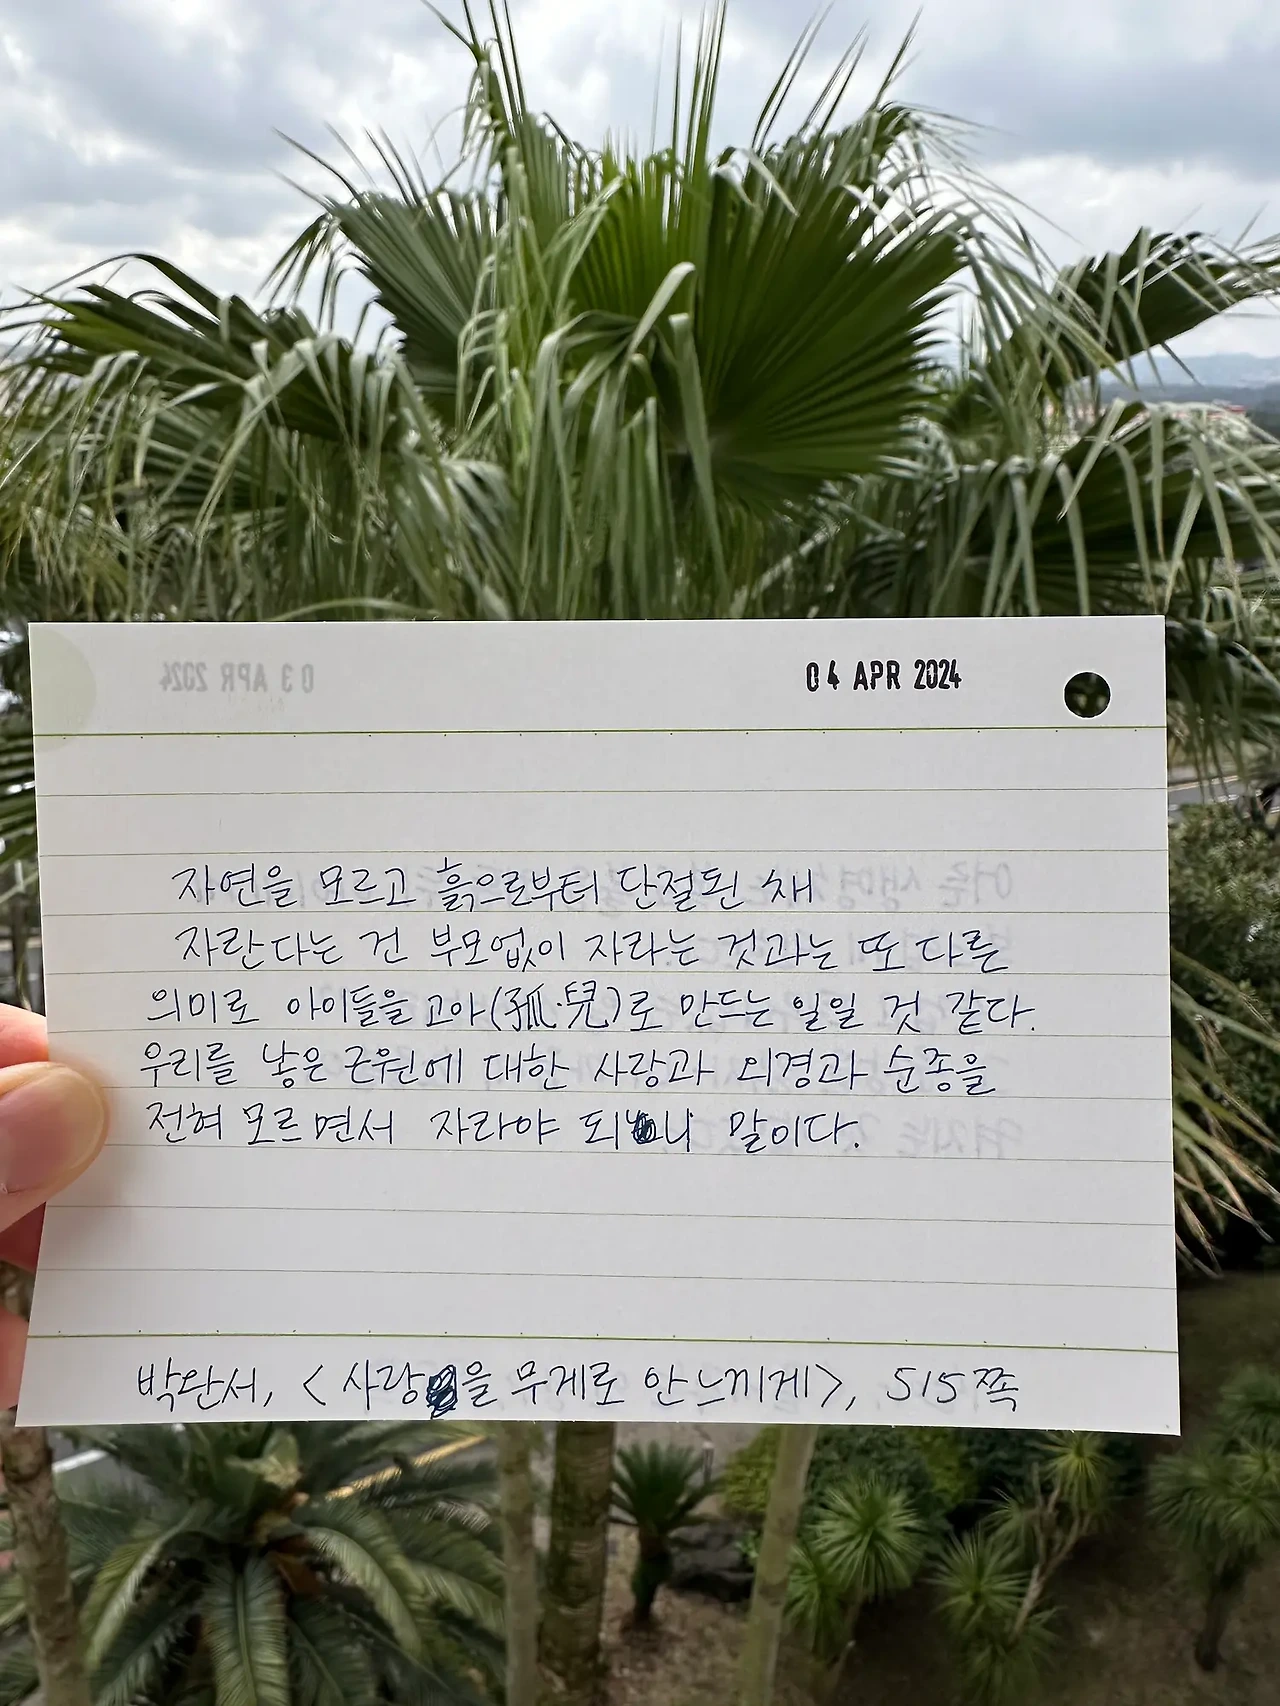 04 APR 2024
03 APR 2024
자연을 모르고 흙으로부터 단절된 채
자란다는 건 부모없이 자라는 것과는 또 다른
의미로 아이들을 고아(孤·兒)로 만드는 일일 것 같다.
우리를 낳은 근원에 대한 사랑과 외경과 순종을
전혀 모르면서 자라야 되니 말이다.
박완서, <사랑을 무게로 안느끼게>, 515쪽